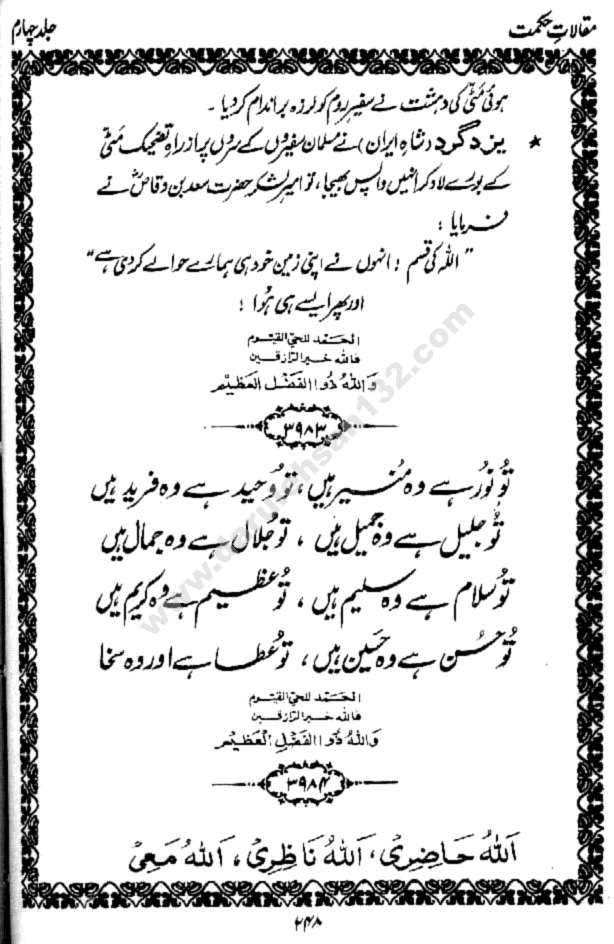 مقالاتِ حکمت
جلد چہارم
ہوئی مُٹّی کی دہشت نے سفیرِ روم کو لرزہ براندام کر دیا ۔
★ یزدگرد (شاہِ ایران) نے مسلمان سفیروں کے سروں پر از راہِ تضحیک مٹی
کے بورے لاد کر انہیں واپس بھیجا، تو امیرِ لشکر حضرت سعد بن وقاصؓ نے
فرمایا :
" اللہ کی قسم ! انہوں نے اپنی زمین خود ہی ہمارے حوالے کر دی ہے "
اور پھر ایسے ہی ہُوا !
الحَمد للحیّ القیّوم
فاللہ خیر الرّازقین
وَاللہُ ذُو الفَضْلِ العَظِیْم
۳۹۸۳
تُو نُور ہے وہ مُنیر ہیں ، تُو وحید ہے وہ فرید ہیں
تُو جلیل ہے وہ جمیل ہیں ، تُو جلال ہے وہ جمال ہیں
تُو سلام ہے وہ سلیم ہیں ، تُو عظیم ہے وہ کریم ہیں
تُو حُسن ہے وہ حَسین ہیں ، تُو عطا ہے اور وہ سخا
الحَمد للحیّ القیّوم
فاللہ خیر الرّازقین
وَاللہُ ذُو الفَضْلِ العَظِیْم
۳۹۸۴
اَللہُ حَاضِرِیْ ، اَللہُ نَاظِرِیْ ، اَللہُ مَعِیْ
۲۴۸
www.darulehsan132.com